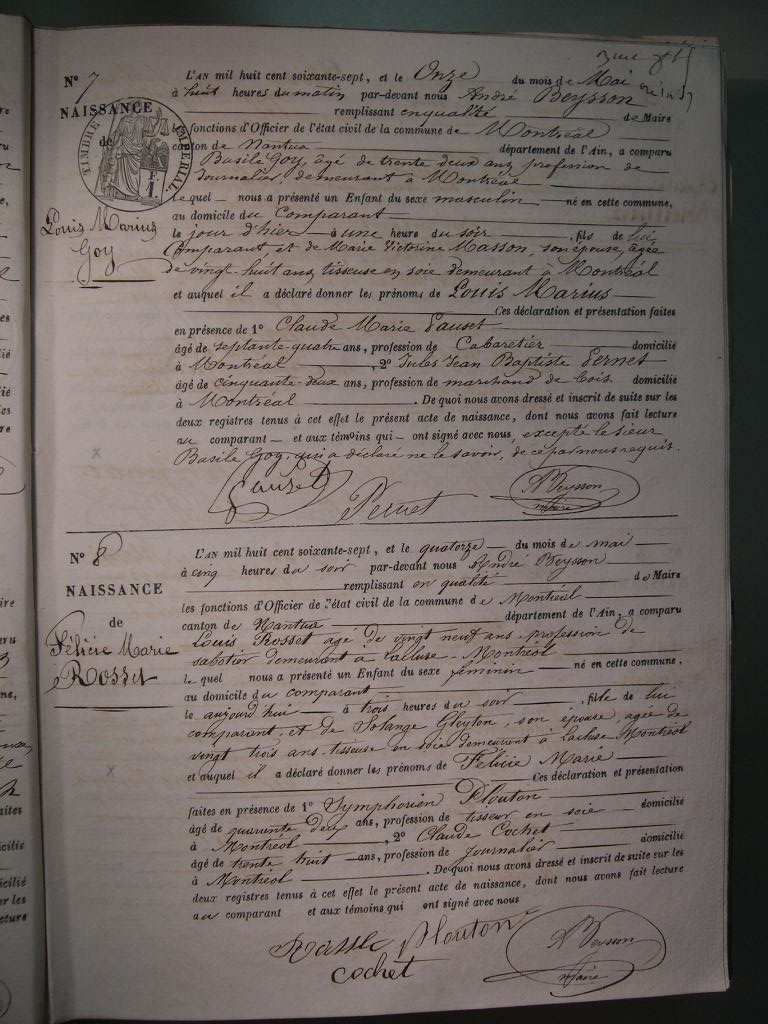 N° 7
NAISSANCE
de
TIMBRE IMPÉRIAL
Louis Marius
Goy
L'AN mil huit cent soixante-sept, et le Onze du mois de Mai
à huit heures du matin par-devant nous André Beysson
remplissant en qualité de Maire
les fonctions d'Officier de l'état civil de la commune de Montréal
canton de Nantua département de l'Ain, a comparu
Basile Goy, agé de trente deux ans profession de
Journalier demeurant à Montréal
le quel nous a présenté un Enfant du sexe masculin né en cette commune,
au domicile du Comparant
le jour d'hier à une heure du soir, fils de lui
Comparant et de Marie Victorine Masson, son épouse, agée
de vingt-huit ans, tisseuse en soie demeurant à Montréal
et auquel il a déclaré donner les prénoms de Louis Marius
Ces déclaration et présentation faites
en présence de 1° Claude Marie Sauset
âgé de septante-quatre ans, profession de Cabaretier domicilié
à Montréal, 2° Jules Jean Baptiste Pernet
âgé de cinquante-deux ans, profession de marchand de bois domicilié
à Montréal. De quoi nous avons dressé et inscrit de suite sur les
deux registres tenus à cet effet le présent acte de naissance, dont nous avons fait lecture
au comparant et aux témoins qui ont signé avec nous, excepté le sieur
Basile Goy, qui a déclaré ne le savoir, de ce par nous requis.
Sauset Pernet ABeysson
maire
N° 8
NAISSANCE
de
Félicie Marie
Rosset
L'AN mil huit cent soixante-sept, et le quatorze du mois de mai
à cinq heures du soir par-devant nous André Beysson
remplissant en qualité de Maire
les fonctions d'Officier de l'état civil de la commune de Montréal
canton de Nantua département de l'Ain, a comparu
Louis Rosset agé de vingt neuf ans profession de
sabotier demeurant à Lacluse Montréal
le quel nous a présenté un Enfant du sexe feminin né en cette commune,
au domicile du comparant
le aujourd'hui à trois heures du soir, fille de lui
comparant, et de Solange Gleyton, son épouse, agée de
vingt trois ans tisseuse en soie demeurant à Lacluse Montréal
et auquel il a déclaré donner les prénoms de Félicie Marie
Ces déclaration et présentation
faites en présence de 1° Symphorien Plouton
âgé de quarante deux ans, profession de tisseur en soie domicilié
à Montréal, 2° Claude Cochet
âgé de trente huit ans, profession de journalier domicilié
à Montréal. De quoi nous avons dressé et inscrit de suite sur les
deux registres tenus à cet effet le présent acte de naissance, dont nous avons fait lecture
au comparant et aux témoins qui ont signé avec nous
Plouton ABeysson
Cochet maire